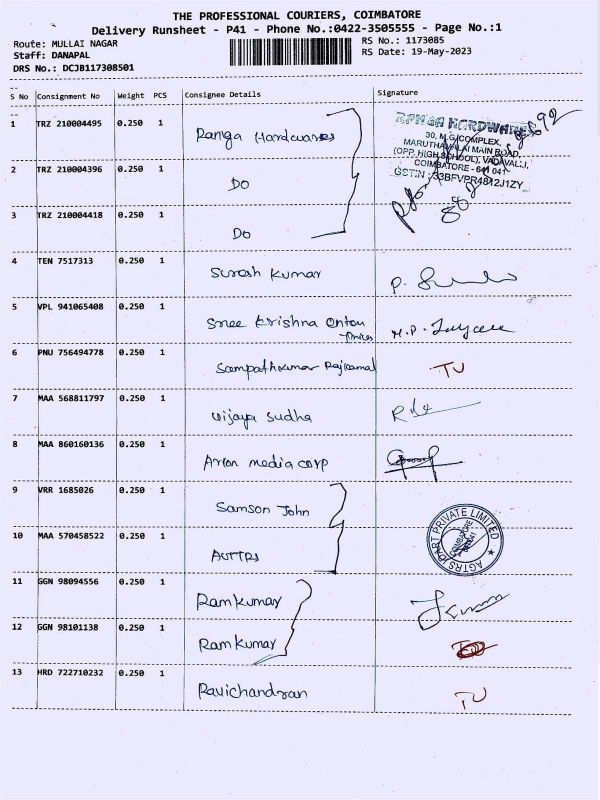 THE PROFESSIONAL COURIERS, COIMBATORE
Delivery Runsheet - P41 - Phone No.:0422-3505555 - Page No.:1
Route: MULLAI NAGAR
RS No.: 1173085
Staff: DANAPAL
RS Date: 19-May-2023
DRS No.: DCJB117308501
S No Consignment No Weight PCS Consignee Details Signature
1 TRZ 210004495 0.250 1 Ranga Hardwares
RANGA HARDWARES
30, M.G.COMPLEX,
MARUTHAMALAI MAIN ROAD,
(OPP. HIGH SCHOOL), VADAVALLI,
COIMBATORE - 641 041
GSTIN : 33BFVPR4842J1ZY
2 TRZ 210004396 0.250 1 DO
3 TRZ 210004418 0.250 1 DO
4 TEN 7517313 0.250 1 Suresh Kumar
5 VPL 941065408 0.250 1 Sree Krishna
6 PNU 756494778 0.250 1 Sampathkumar Rajkamal TU
7 MAA 568811797 0.250 1 Vijaya Sudha
8 MAA 860160136 0.250 1 Arion media corp
9 VRR 1685026 0.250 1 Samson John
10 MAA 570458522 0.250 1
PRIVATE LIMITED
COIMBATORE
11 GGN 98094556 0.250 1 Ramkumar
12 GGN 98101138 0.250 1 Ramkumar
13 HRD 722710232 0.250 1 Ravichandran TU